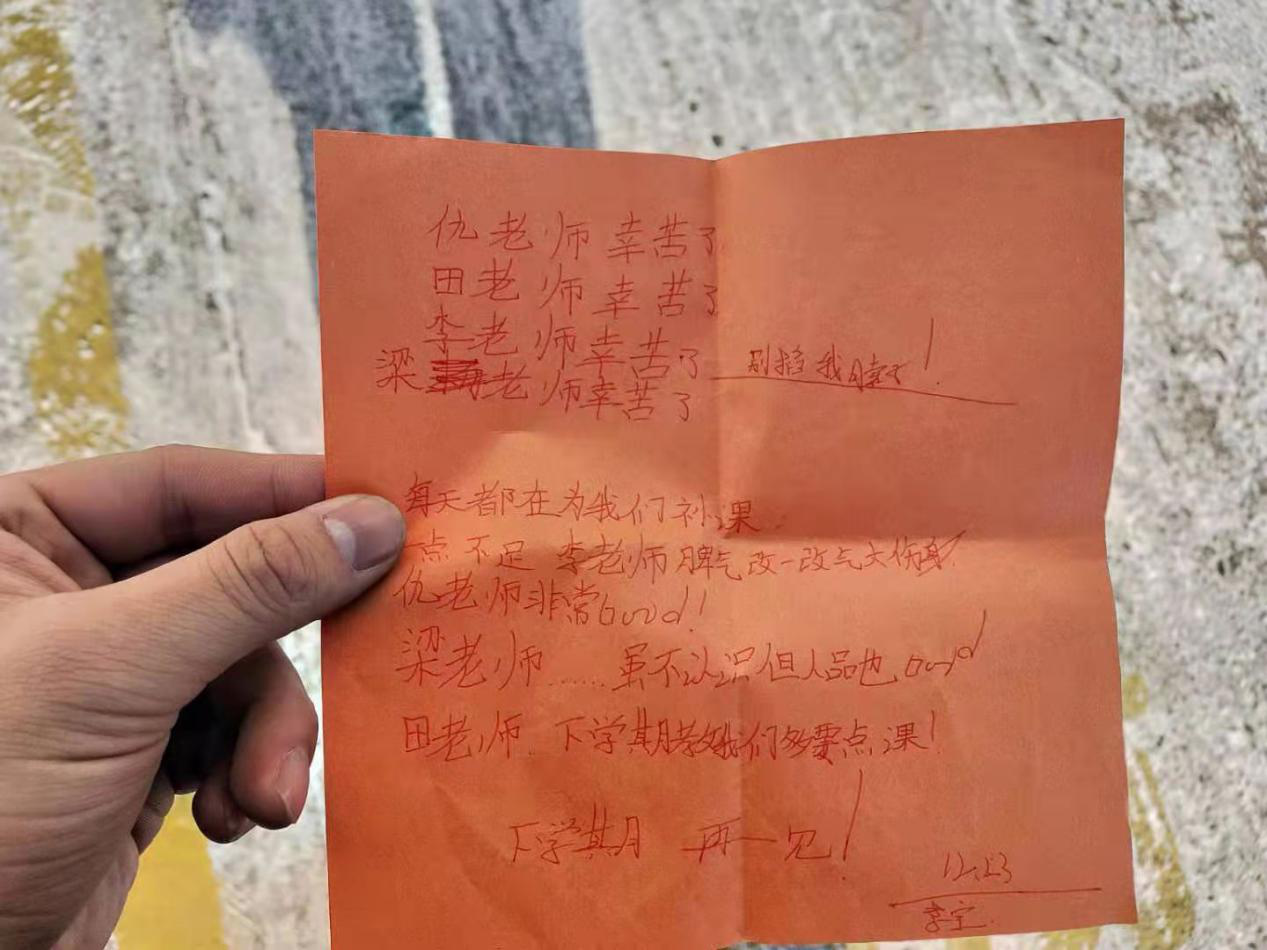 仇老师幸苦了
田老师幸苦了
李老师幸苦了
别掐我脖子!
梁老师幸苦了
每天都在为我们补课
一点不足 李老师脾气改一改气大伤身
仇老师非常good!
梁老师……虽不认识但人品也good
田老师 下学期教我们多要点课!
下学期 再一见!
12.23